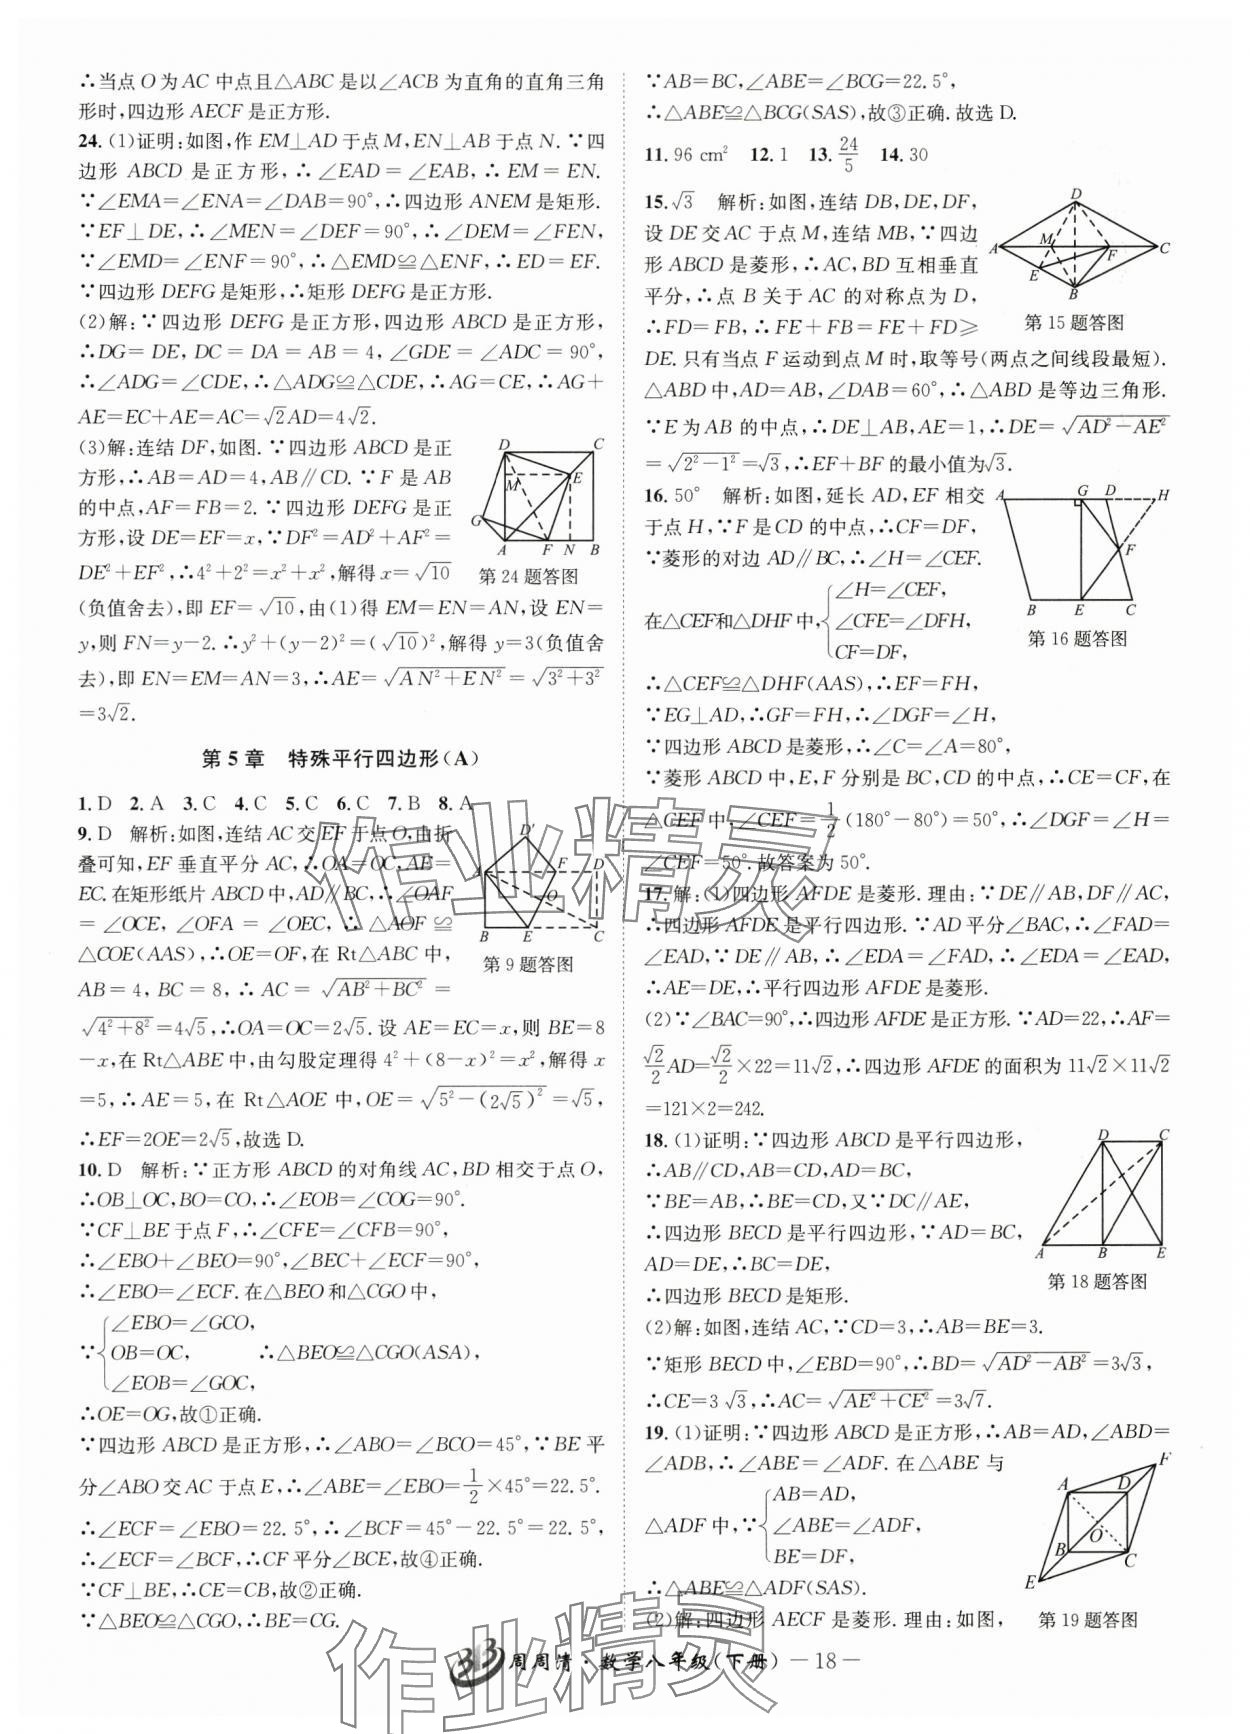 ∴当点O为AC中点且△ABC是以∠ACB为直角的直角三角
形时,四边形AECF是正方形.
24.(1)证明:如图,作EM⊥AD于点M,EN⊥AB于点N.∵四
边形ABCD是正方形,∴∠EAD=∠EAB,∴EM=EN.
∵∠EMA=∠ENA=∠DAB=90°,∴四边形ANEM是矩形.
∵EF⊥DE,∴∠MEN=∠DEF=90°,∴∠DEM=∠FEN,
∵∠EMD=∠ENF=90°,∴△EMD≌△ENF,∴ED=EF.
∵四边形DEFG是矩形,∴矩形DEFG是正方形.
(2)解:∵四边形DEFG是正方形,四边形ABCD是正方形,
∴DG=DE,DC=DA=AB=4,∠GDE=∠ADC=90°,
∴∠ADG=∠CDE,∴△ADG≌△CDE,∴AG=CE,∴AG+
AE=EC+AE=AC=√2AD=4√2.
(3)解:连结DF,如图.∵四边形ABCD是正
方形,∴AB=AD=4,AB∥CD.∵F是AB
的中点,AF=FB=2.∵四边形DEFG是正
方形,设DE=EF=x,∵DF²=AD²+AF²=
DE²+EF²,∴4²+2²=x²+x²,解得x=√10
(负值舍去),即EF=√10,由(1)得EM=EN=AN,设EN=
y,则FN=y-2.∴y²+(y-2)²=(√10)²,解得y=3(负值舍
去),即EN=EM=AN=3,∴AE=√(AN²+EN²)=√(3²+3²)
=3√2.
D C M E G A F N B
第24题答图
第5章 特殊平行四边形(A)
1.D 2.A 3.C 4.C 5.C 6.C 7.B 8.A
9.D 解析:如图,连结AC交EF于点O,由折
叠可知,EF垂直平分AC,∴OA=OC,AE=
EC.在矩形纸片ABCD中,AD∥BC,∴∠OAF
=∠OCE,∠OFA=∠OEC,∴△AOF≌
△COE(AAS),∴OE=OF,在Rt△ABC中,
AB=4,BC=8,∴AC=√(AB²+BC²)=
√(4²+8²)=4√5,∴OA=OC=2√5.设AE=EC=x,则BE=8
-x,在Rt△ABE中,由勾股定理得4²+(8-x)²=x²,解得x
=5,∴AE=5,在Rt△AOE中,OE=√(5²-(2√5)²)=√5,
∴EF=2OE=2√5,故选D.
D′ A F D O B E C
第9题答图
10.D 解析:∵正方形ABCD的对角线AC,BD相交于点O,
∴OB⊥OC,BO=CO,∴∠EOB=∠COG=90°.
∵CF⊥BE于点F,∴∠CFE=∠CFB=90°,
∴∠EBO+∠BEO=90°,∠BEC+∠ECF=90°,
∴∠EBO=∠ECF.在△BEO和△CGO中,
∠EBO=∠GCO,
∵{OB=OC, ∴△BEO≌△CGO(ASA),
∠EOB=∠GOC,
∴OE=OG,故①正确.
∵四边形ABCD是正方形,∴∠ABO=∠BCO=45°,∵BE平
分∠ABO交AC于点E,∴∠ABE=∠EBO=1/2×45°=22.5°.
∴∠ECF=∠EBO=22.5°,∴∠BCF=45°-22.5°=22.5°,
∴∠ECF=∠BCF,∴CF平分∠BCE,故④正确.
∵CF⊥BE,∴CE=CB,故②正确.
∵△BEO≌△CGO,∴BE=CG.
∵AB=BC,∠ABE=∠BCG=22.5°,
∴△ABE≌△BCG(SAS),故③正确.故选D.
11.96 cm² 12.1 13.24/5 14.30
15.√3 解析:如图,连结DB,DE,DF,
设DE交AC于点M,连结MB,∵四边
形ABCD是菱形,∴AC,BD互相垂直
平分,∴点B关于AC的对称点为D,
∴FD=FB,∴FE+FB=FE+FD≥
DE.只有当点F运动到点M时,取等号(两点之间线段最短).
△ABD中,AD=AB,∠DAB=60°,∴△ABD是等边三角形.
∵E为AB的中点,∴DE⊥AB,AE=1,∴DE=√(AD²-AE²)
=√(2²-1²)=√3,∴EF+BF的最小值为√3.
D A M F C E B
第15题答图
16.50° 解析:如图,延长AD,EF相交
于点H,∵F是CD的中点,∴CF=DF,
∵菱形的对边AD∥BC,∴∠H=∠CEF.
∠H=∠CEF,
在△CEF和△DHF中,{∠CFE=∠DFH,
CF=DF,
∴△CEF≌△DHF(AAS),∴EF=FH,
∵EG⊥AD,∴GF=FH,∴∠DGF=∠H,
∵四边形ABCD是菱形,∴∠C=∠A=80°,
∵菱形ABCD中,E,F分别是BC,CD的中点,∴CE=CF,在
△CEF中,∠CEF=1/2(180°-80°)=50°,∴∠DGF=∠H=
∠CEF=50°.故答案为50°.
A G D H F B E C
第16题答图
17.解:(1)四边形AFDE是菱形.理由:∵DE∥AB,DF∥AC,
∴四边形AFDE是平行四边形.∵AD平分∠BAC,∴∠FAD=
∠EAD,∵DE∥AB,∴∠EDA=∠FAD,∴∠EDA=∠EAD,
∴AE=DE,∴平行四边形AFDE是菱形.
(2)∵∠BAC=90°,∴四边形AFDE是正方形.∵AD=22,∴AF=
√2/2AD=√2/2×22=11√2,∴四边形AFDE的面积为11√2×11√2
=121×2=242.
18.(1)证明:∵四边形ABCD是平行四边形,
∴AB∥CD,AB=CD,AD=BC,
∵BE=AB,∴BE=CD,又∵DC∥AE,
∴四边形BECD是平行四边形,∵AD=BC,
AD=DE,∴BC=DE,
∴四边形BECD是矩形.
(2)解:如图,连结AC,∵CD=3,∴AB=BE=3.
∵矩形BECD中,∠EBD=90°,∴BD=√(AD²-AB²)=3√3,
∴CE=3√3,∴AC=√(AE²+CE²)=3√7.
D C A B E
第18题答图
19.(1)证明:∵四边形ABCD是正方形,∴AB=AD,∠ABD=
∠ADB,∴∠ABE=∠ADF.在△ABE与
AB=AD,
△ADF中,∵{∠ABE=∠ADF,
BE=DF,
∴△ABE≌△ADF(SAS).
(2)解:四边形AECF是菱形.理由:如图,
F A D O B C E
第19题答图
作业精灵
作业精灵
周周清·数学八年级(下册)—18—